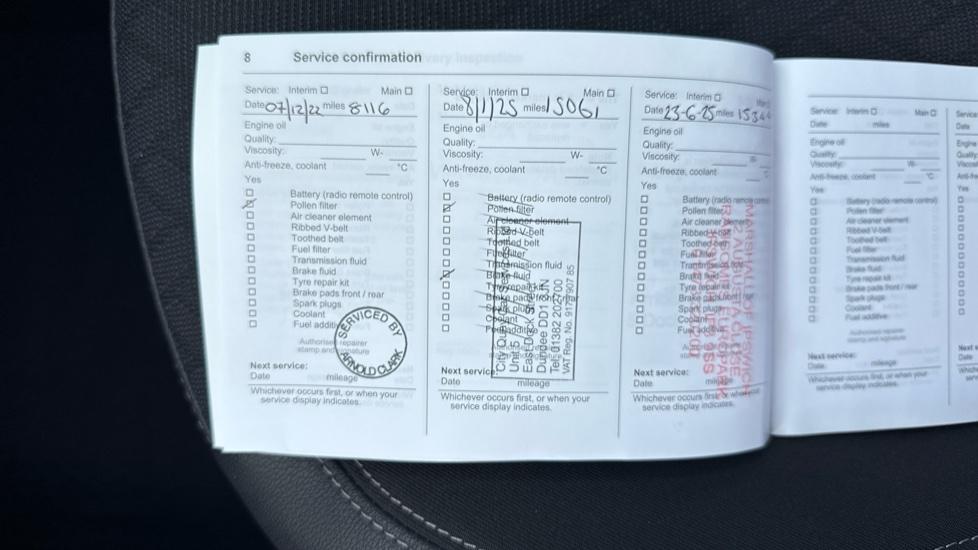 8 Service confirmation
Service: Interim Main
Date 07/12/22 miles 8116
Engine oil
Quality:
Viscosity: W-
Anti-freeze, coolant °C
Yes
Battery (radio remote control)
Pollen filter
Air cleaner element
Ribbed V-belt
Toothed belt
Fuel filter
Transmission fluid
Brake fluid
Tyre repair kit
Brake pads front / rear
Spark plugs
Coolant
Fuel additive
Authorised repairer
stamp and signature
SERVICED BY
ARNOLD CLARK
Next service:
Date mileage
Whichever occurs first, or when your
service display indicates.
Service: Interim Main
Date 8/1/25 miles 15061
Engine oil
Quality:
Viscosity: W-
Anti-freeze, coolant °C
Yes
Battery (radio remote control)
Pollen filter
Air cleaner element
Ribbed V-belt
Toothed belt
Fuel filter
Transmission fluid
Brake fluid
Tyre repair kit
Brake pads front / rear
Spark plugs
Coolant
Fuel additive
Unit 5
Dundee DD1
Tel: 01382 202700
VAT Reg. No. 917 7907 85
Next service:
Date mileage
Whichever occurs first, or when your
service display indicates.
Service: Interim
Date 23-6-25 miles
Engine oil
Quality:
Viscosity:
Anti-freeze, coolant °C
Yes
Battery (radio remote
Pollen filter
Air cleaner element
Ribbed V-belt
Toothed belt
Fuel filter
Transmission fluid
Brake fluid
Tyre repair kit
Brake pads front / rear
Spark plugs
Coolant
Fuel additive
MARSHALL OF IPSWICH
Next service:
Date mileage
Whichever occurs first, or when
service display indicates.
Service: Interim Main
Date miles
Engine oil
Quality:
Viscosity: W-
Anti-freeze, coolant °C
Yes
Battery (radio remote control)
Pollen filter
Air cleaner element
Ribbed V-belt
Toothed belt
Fuel filter
Transmission fluid
Brake fluid
Tyre repair kit
Brake pads front / rear
Spark plugs
Coolant
Fuel additive
Authorised repairer
stamp and signature
Next service:
Date mileage
Whichever occurs first, or when your
service display indicates.